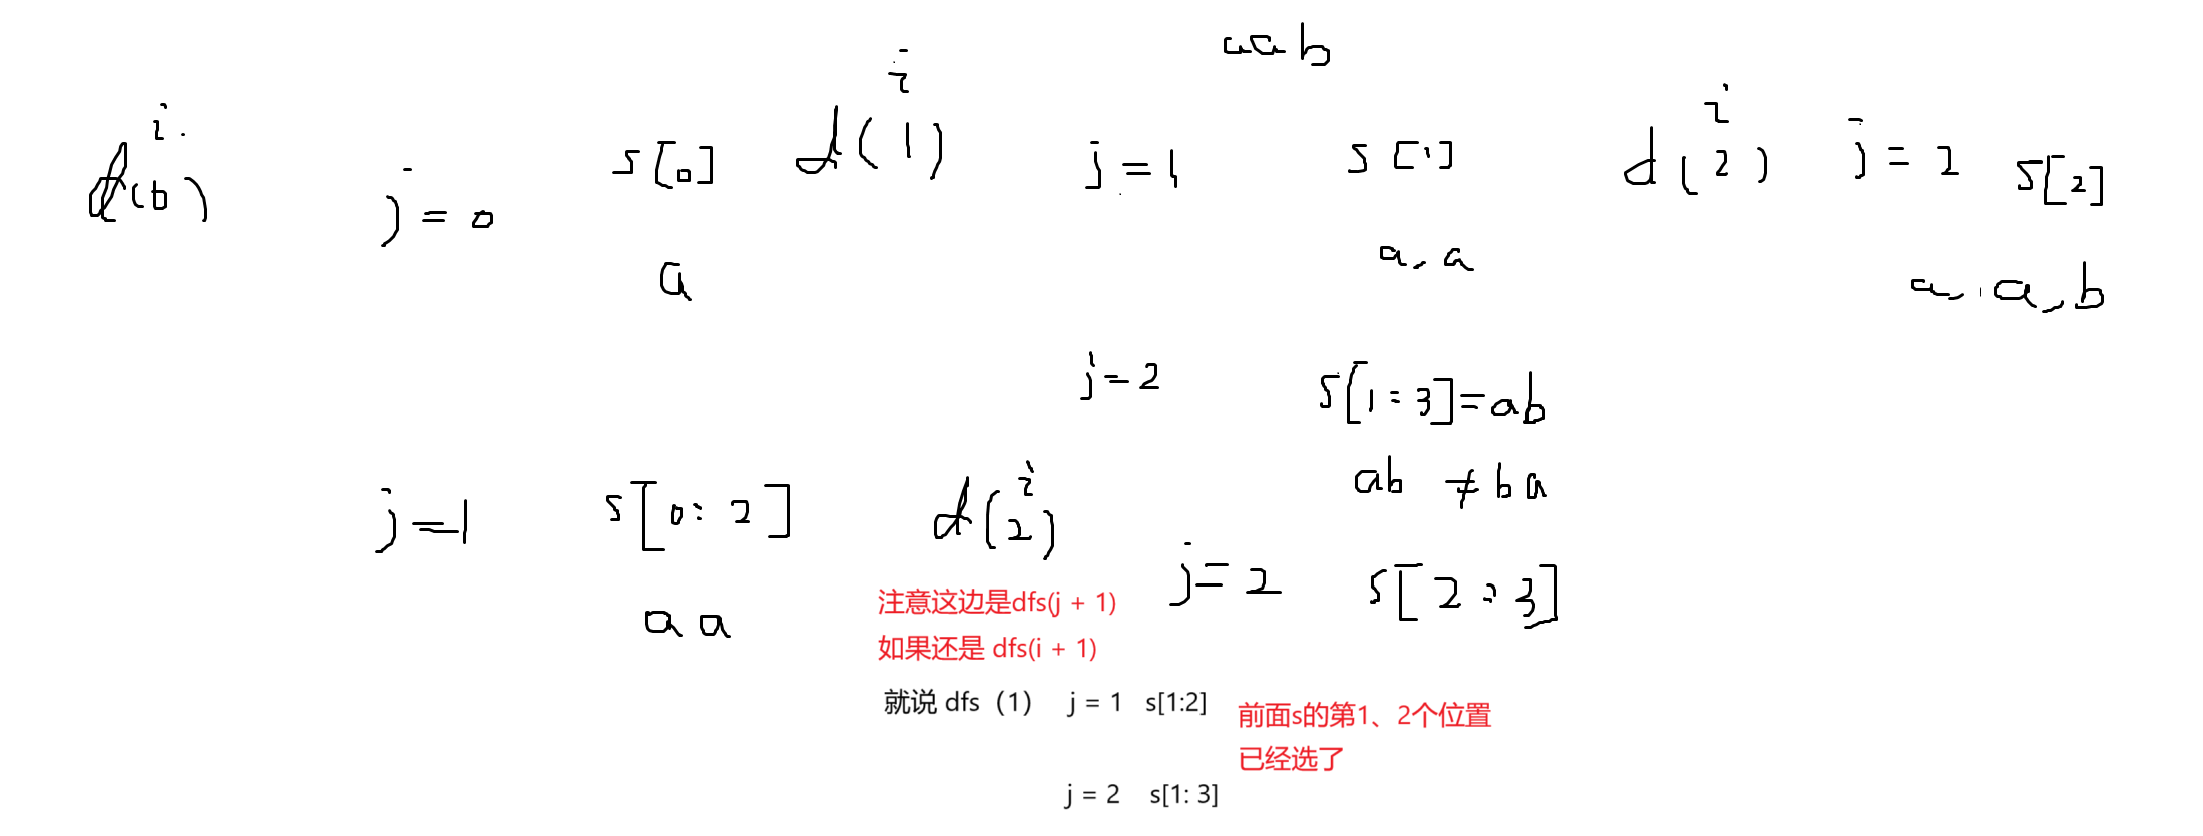 aab
i
d(0)
j = 0
s[0]
a
i
d(1)
j = 1
s[1]
a, a
i
d(2)
j = 2
s[2]
a, a, b
j = 2
s[1:3]=ab
ab ≠ ba
j = 1
s[0:2]
aa
i
d(2)
j = 2
s[2:3]
注意这边是dfs(j + 1)
如果还是 dfs(i + 1)
就说 dfs（1） j = 1 s[1:2]
前面s的第1、2个位置
已经选了
j = 2 s[1: 3]